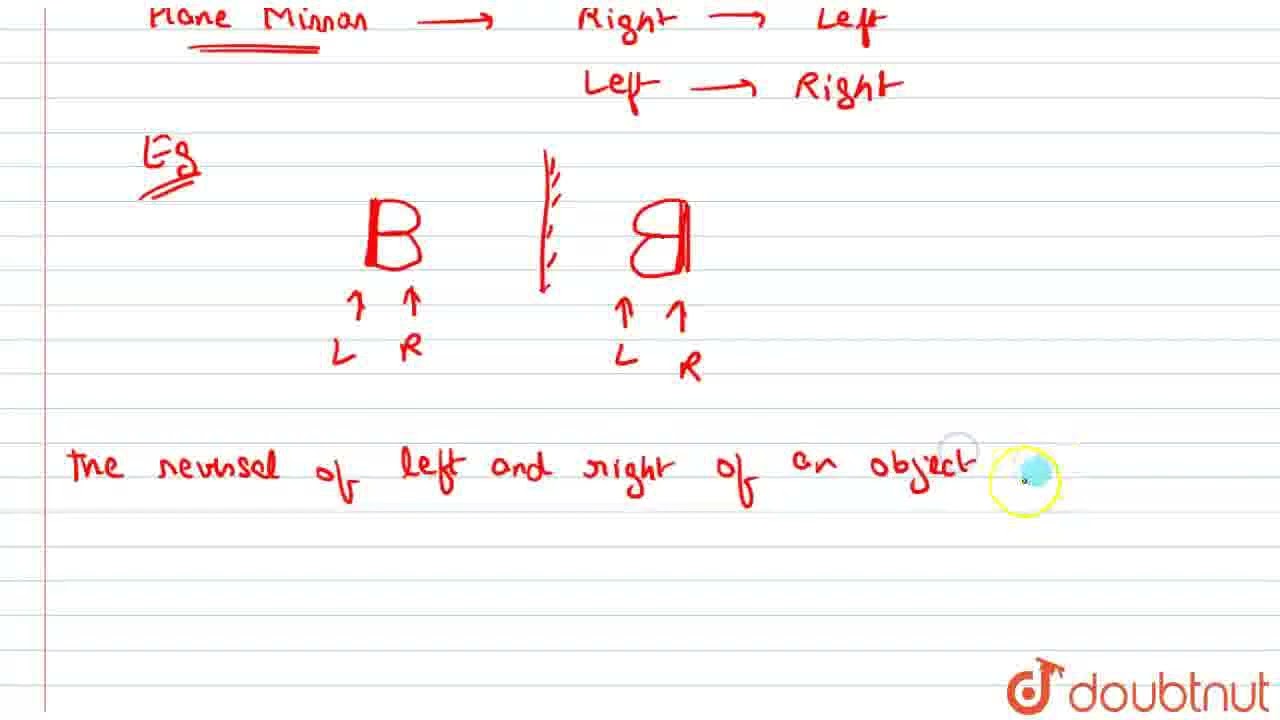 Plane Mirror → Right → Left
Left → Right
Eg
B B
L R L R
The reversal of left and right of an object
doubtnut